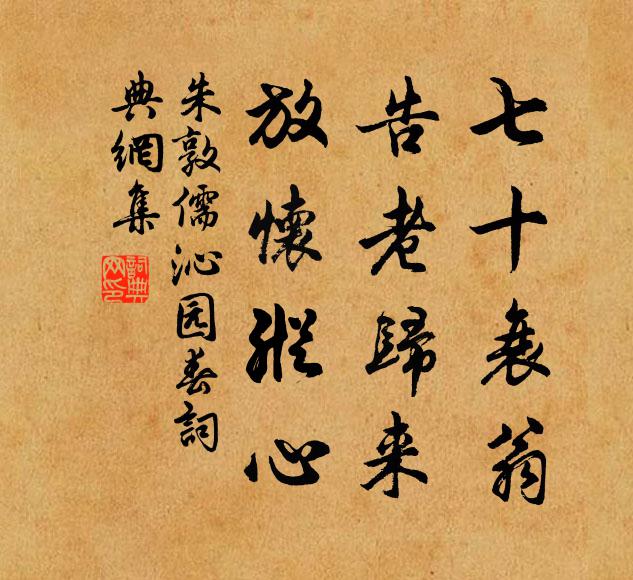 七十衰翁
告老歸来
放懷縱心
朱敦儒沁园春詞
典網集
詞典网印